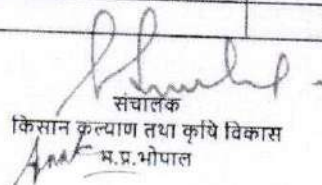 संचालक
किसान कल्याण तथा कृषि विकास
म.प्र.भोपाल